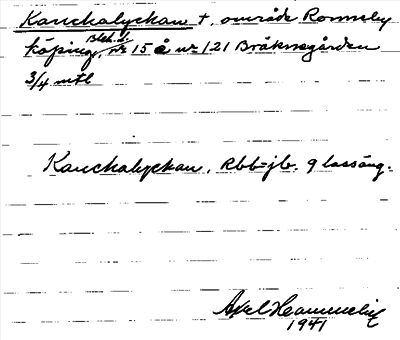 Kanckalyckan +, område Ronneby
köping, Blek. l. nr 15 å nr 121 Bråkensgården
3/4 mtl
Kanckalyckan, Rbb=jb. 9 lassäng.
Axel
1941